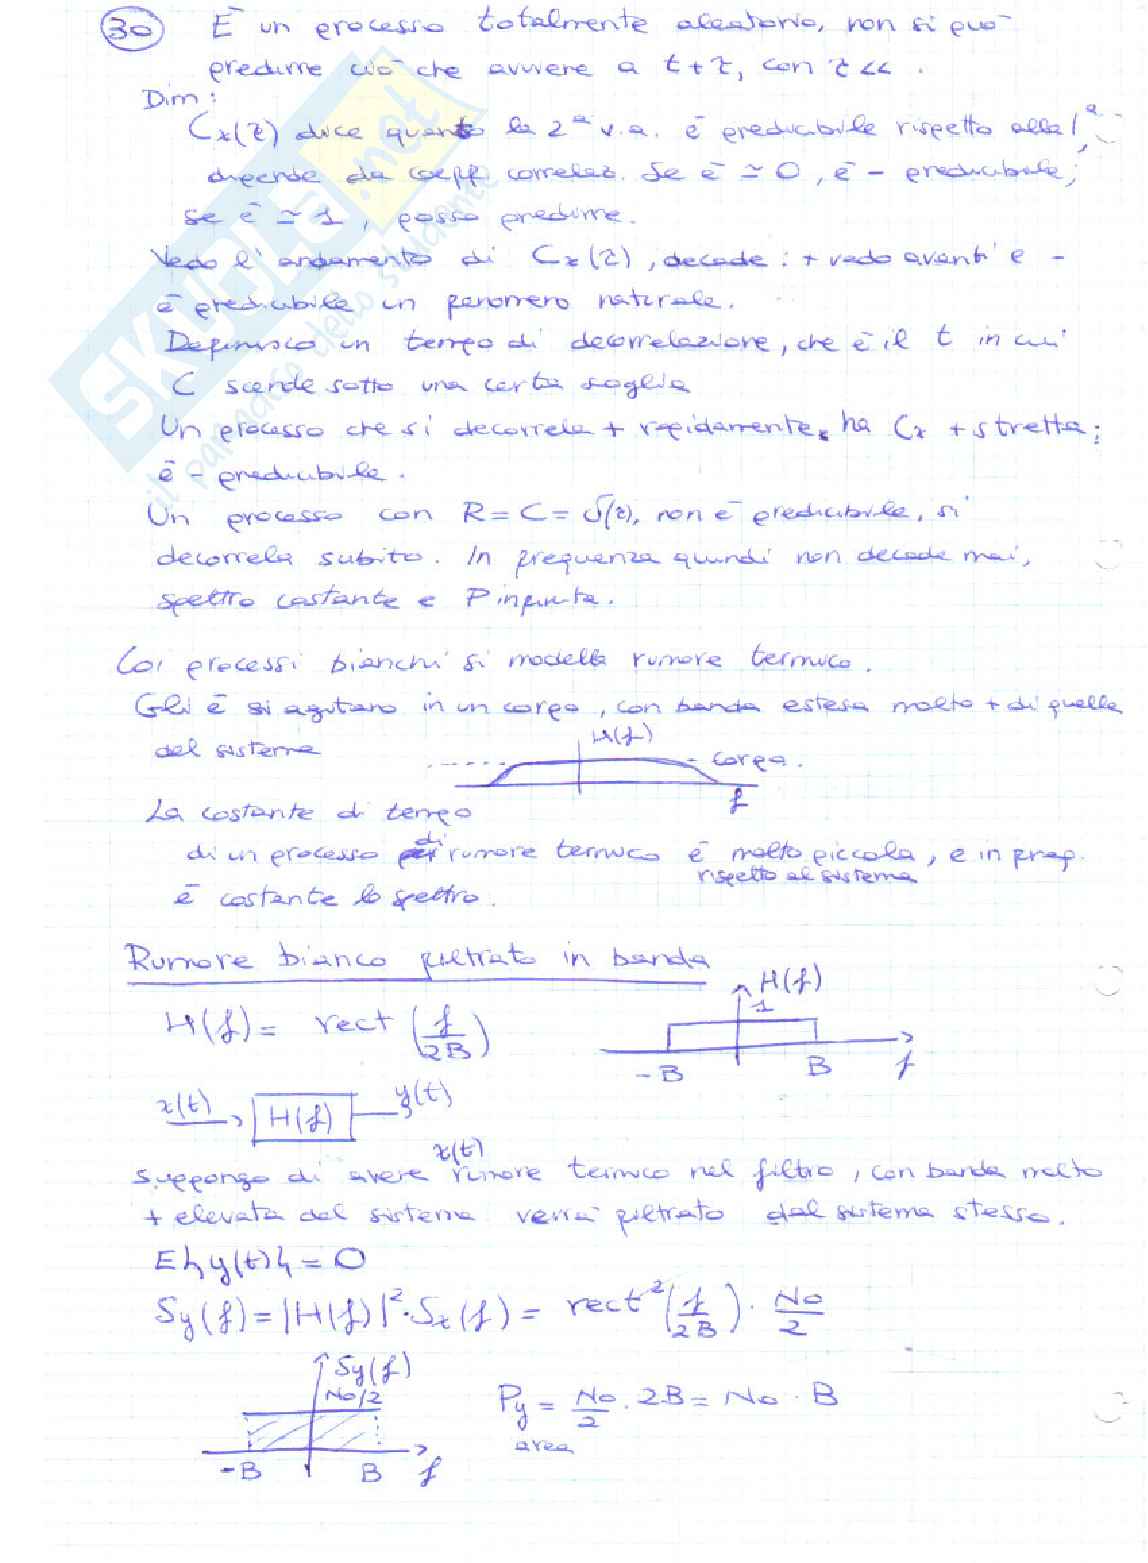 30 È un processo totalmente aleatorio, non si può
predurre ciò che avviene a t+τ, con τ<<.
Dim:
Cx(τ) dice quanto la 2ª v.a. è predicibile rispetto alla 1ª,
dipende da coeff correlaz. Se è ≃ 0, è - predicibile;
se è ≃ 1, posso predirre.
Vedo l'andamento di Cx(τ), decade: + vado avanti e -
è predicibile un fenomeno naturale.
Definisco un tempo di decorrelazione, che è il t in cui
C scende sotto una certa soglia
Un processo che si decorrela + rapidamente, ha Cx + stretta;
è - predicibile.
Un processo con R = C = δ(τ), non è predicibile, si
decorrela subito. In frequenza quindi non decade mai,
spettro costante e P infinita.
Coi processi bianchi si modella rumore termico.
Gli ē si agitano in un corpo, con banda estesa molto + di quella
del sistema
H(f)
corpo.
f
La costante di tempo
di un processo di rumore termico è molto piccola, e in freq.
rispetto al sistema
è costante lo spettro.
Rumore bianco filtrato in banda
H(f) = rect (f/2B)
H(f)
1
-B B f
x(t) H(f) y(t)
x(t)
Suppongo di avere rumore termico nel filtro, con banda molto
+ elevata del sistema verrà filtrato dal sistema stesso.
E{y(t)} = 0
Sy(f) = |H(f)|² · Sx(f) = rect² (f/2B) · No/2
Sy(f)
No/2
-B B f
Py = No/2 · 2B = No · B
area
SKUOLA.net
il paradiso dello studente